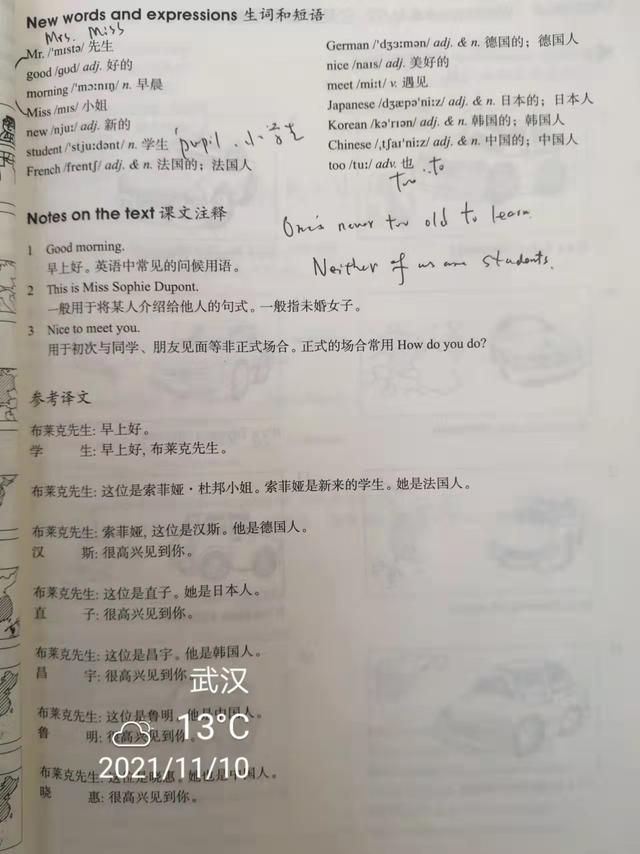 New words and expressions 生词和短语
Mrs. Miss
Mr. /'mɪstə/ 先生
good /gʊd/ adj. 好的
morning /'mɔ:nɪŋ/ n. 早晨
Miss /mɪs/ 小姐
new /nju:/ adj. 新的
student /'stju:dənt/ n. 学生 pupil 小学生
French /frentʃ/ adj. & n. 法国的；法国人
German /'dʒɜ:mən/ adj. & n. 德国的；德国人
nice /naɪs/ adj. 美好的
meet /mi:t/ v. 遇见
Japanese /dʒæpə'ni:z/ adj. & n. 日本的；日本人
Korean /kə'rɪən/ adj. & n. 韩国的；韩国人
Chinese /ˌtʃaɪ'ni:z/ adj. & n. 中国的；中国人
too /tu:/ adv. 也
too...to
Notes on the text 课文注释
One's never too old to learn.
Neither of us are students.
1 Good morning.
早上好。英语中常见的问候用语。
2 This is Miss Sophie Dupont.
一般用于将某人介绍给他人的句式。一般指未婚女子。
3 Nice to meet you.
用于初次与同学、朋友见面等非正式场合。正式的场合常用 How do you do?
参考译文
布莱克先生: 早上好。
学 生: 早上好, 布莱克先生。
布莱克先生: 这位是索菲娅·杜邦小姐。索菲娅是新来的学生。她是法国人。
布莱克先生: 索菲娅, 这位是汉斯。他是德国人。
汉 斯: 很高兴见到你。
布莱克先生: 这位是直子。她是日本人。
直 子: 很高兴见到你。
布莱克先生: 这位是昌宇。他是韩国人。
昌 宇: 很高兴见到你
武汉
布莱克先生: 这位是鲁明。他是中国人。
鲁 明: 很高兴见到你。
13°C
2021/11/10
布莱克先生: 这位是晓惠。她也是中国人。
晓 惠: 很高兴见到你。